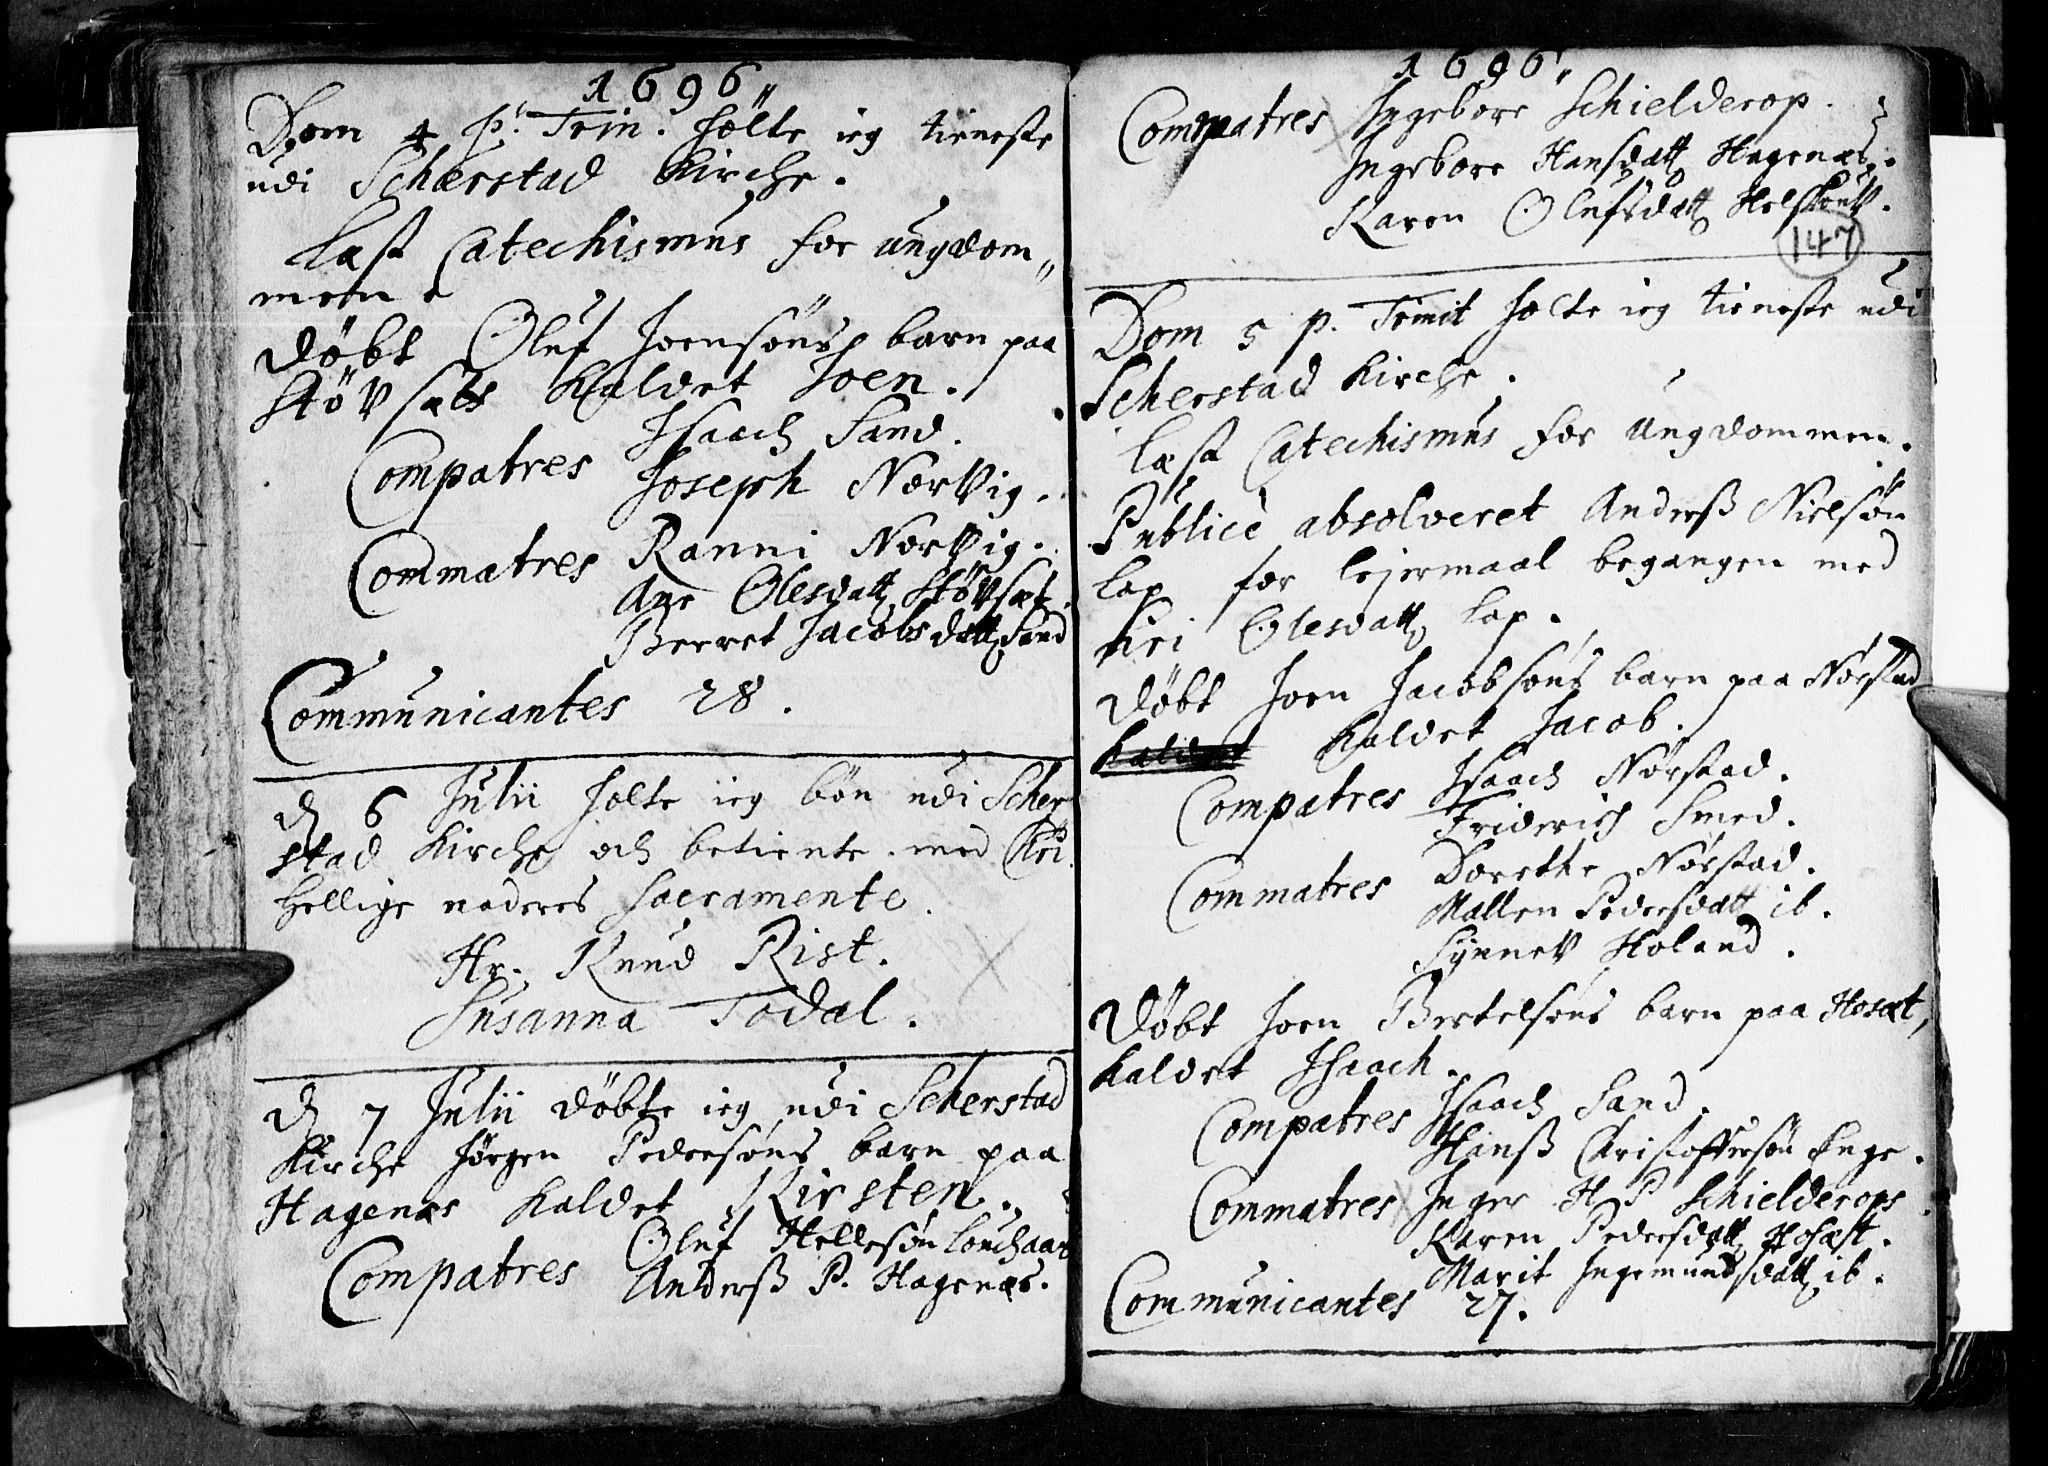 1696
Dom 4 p. Trin. holte ieg tieneste
udi Scherstad Kirche.
Læst Catechismus for ungdom„
men.
Døbt Oluf Joensøns barn paa
Støvsæts kaldet Joen.
Isaach Sand.
Compatres Joseph Nærvig.
Commatres Ranni Nærvig.
Ane Olesdatt. Støvsæt.
Berret Jacobsdatt. Sand
Communicantes 28.
d. 6 Julii holte ieg bøn udi Scher„
stad Kirche och betiente med
hellige naderes Sacramente.
Hr. Knud Rist.
Susanna Todal.
d. 7 Julii døbte ieg udi Scherstad
Kirche Jørgen Pedersøns barn paa
Hagenæs kaldet Kirsten.
Oluf Hellesøn
Compatres Anderß P. Hagenæs.
1696
Compatres Ingebore Schielderop.
Ingebore Hansdatt. Hagenæs.
Karen Olufsdatt.
147
Dom 5 p. Trinit holte ieg tieneste udi
Scherstad Kirche.
læst Catechismus for ungdommen.
Publice absolveret Anderß Nielsøn
lap for lejermaal begangen med
Siri Olesdatt. lap.
Døbt Joen Jacobsøns barn paa Nørstad
kaldet kaldet Jacob.
Isaach Nørstad.
Compatres Friderich Smed.
Dorethe Nørstad.
Commatres Mallen Pedersdatt ib.
Synnev Holand.
Døbt Joen Bertelsøns barn paa Hosæt,
kaldet Isaach.
Compatres Isaach Sand.
Hanß Christoffersøn Enge.
Commatres Inger H P Schielderops
Karen Pedersdatt. Hosæt.
Marit Ingemundsdatt. ib.
Communicantes 27.